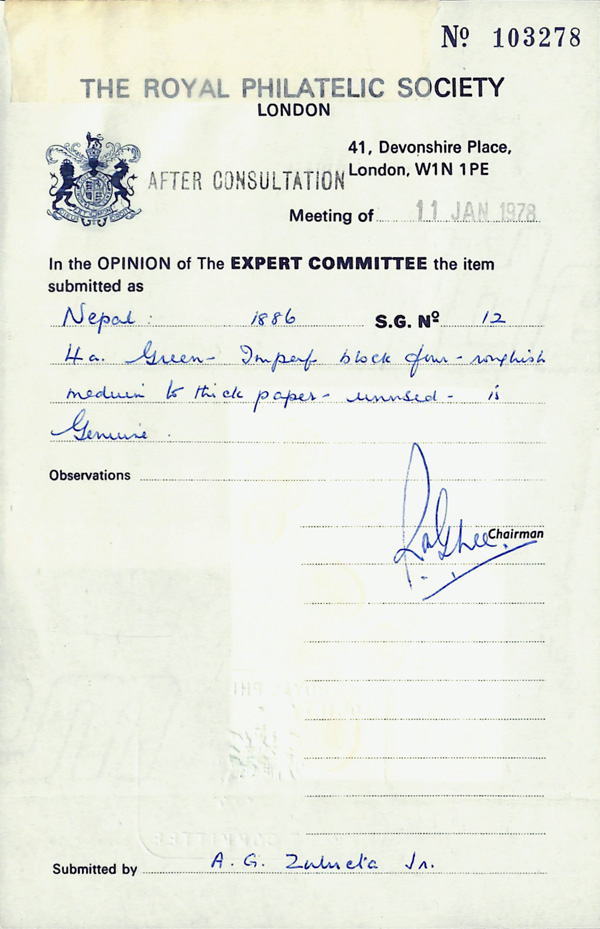 Nº 103278
THE ROYAL PHILATELIC SOCIETY
LONDON
41, Devonshire Place,
London, W1N 1PE
AFTER CONSULTATION
Meeting of 11 JAN 1978
In the OPINION of The EXPERT COMMITTEE the item
submitted as
Nepal: 1886 S.G. Nº 12
4a. Green - Imperf block four - roughish
medium to thick paper - unused - is
Genuine.
Observations
Chairman
Submitted by A. G. Zulueta Jr.